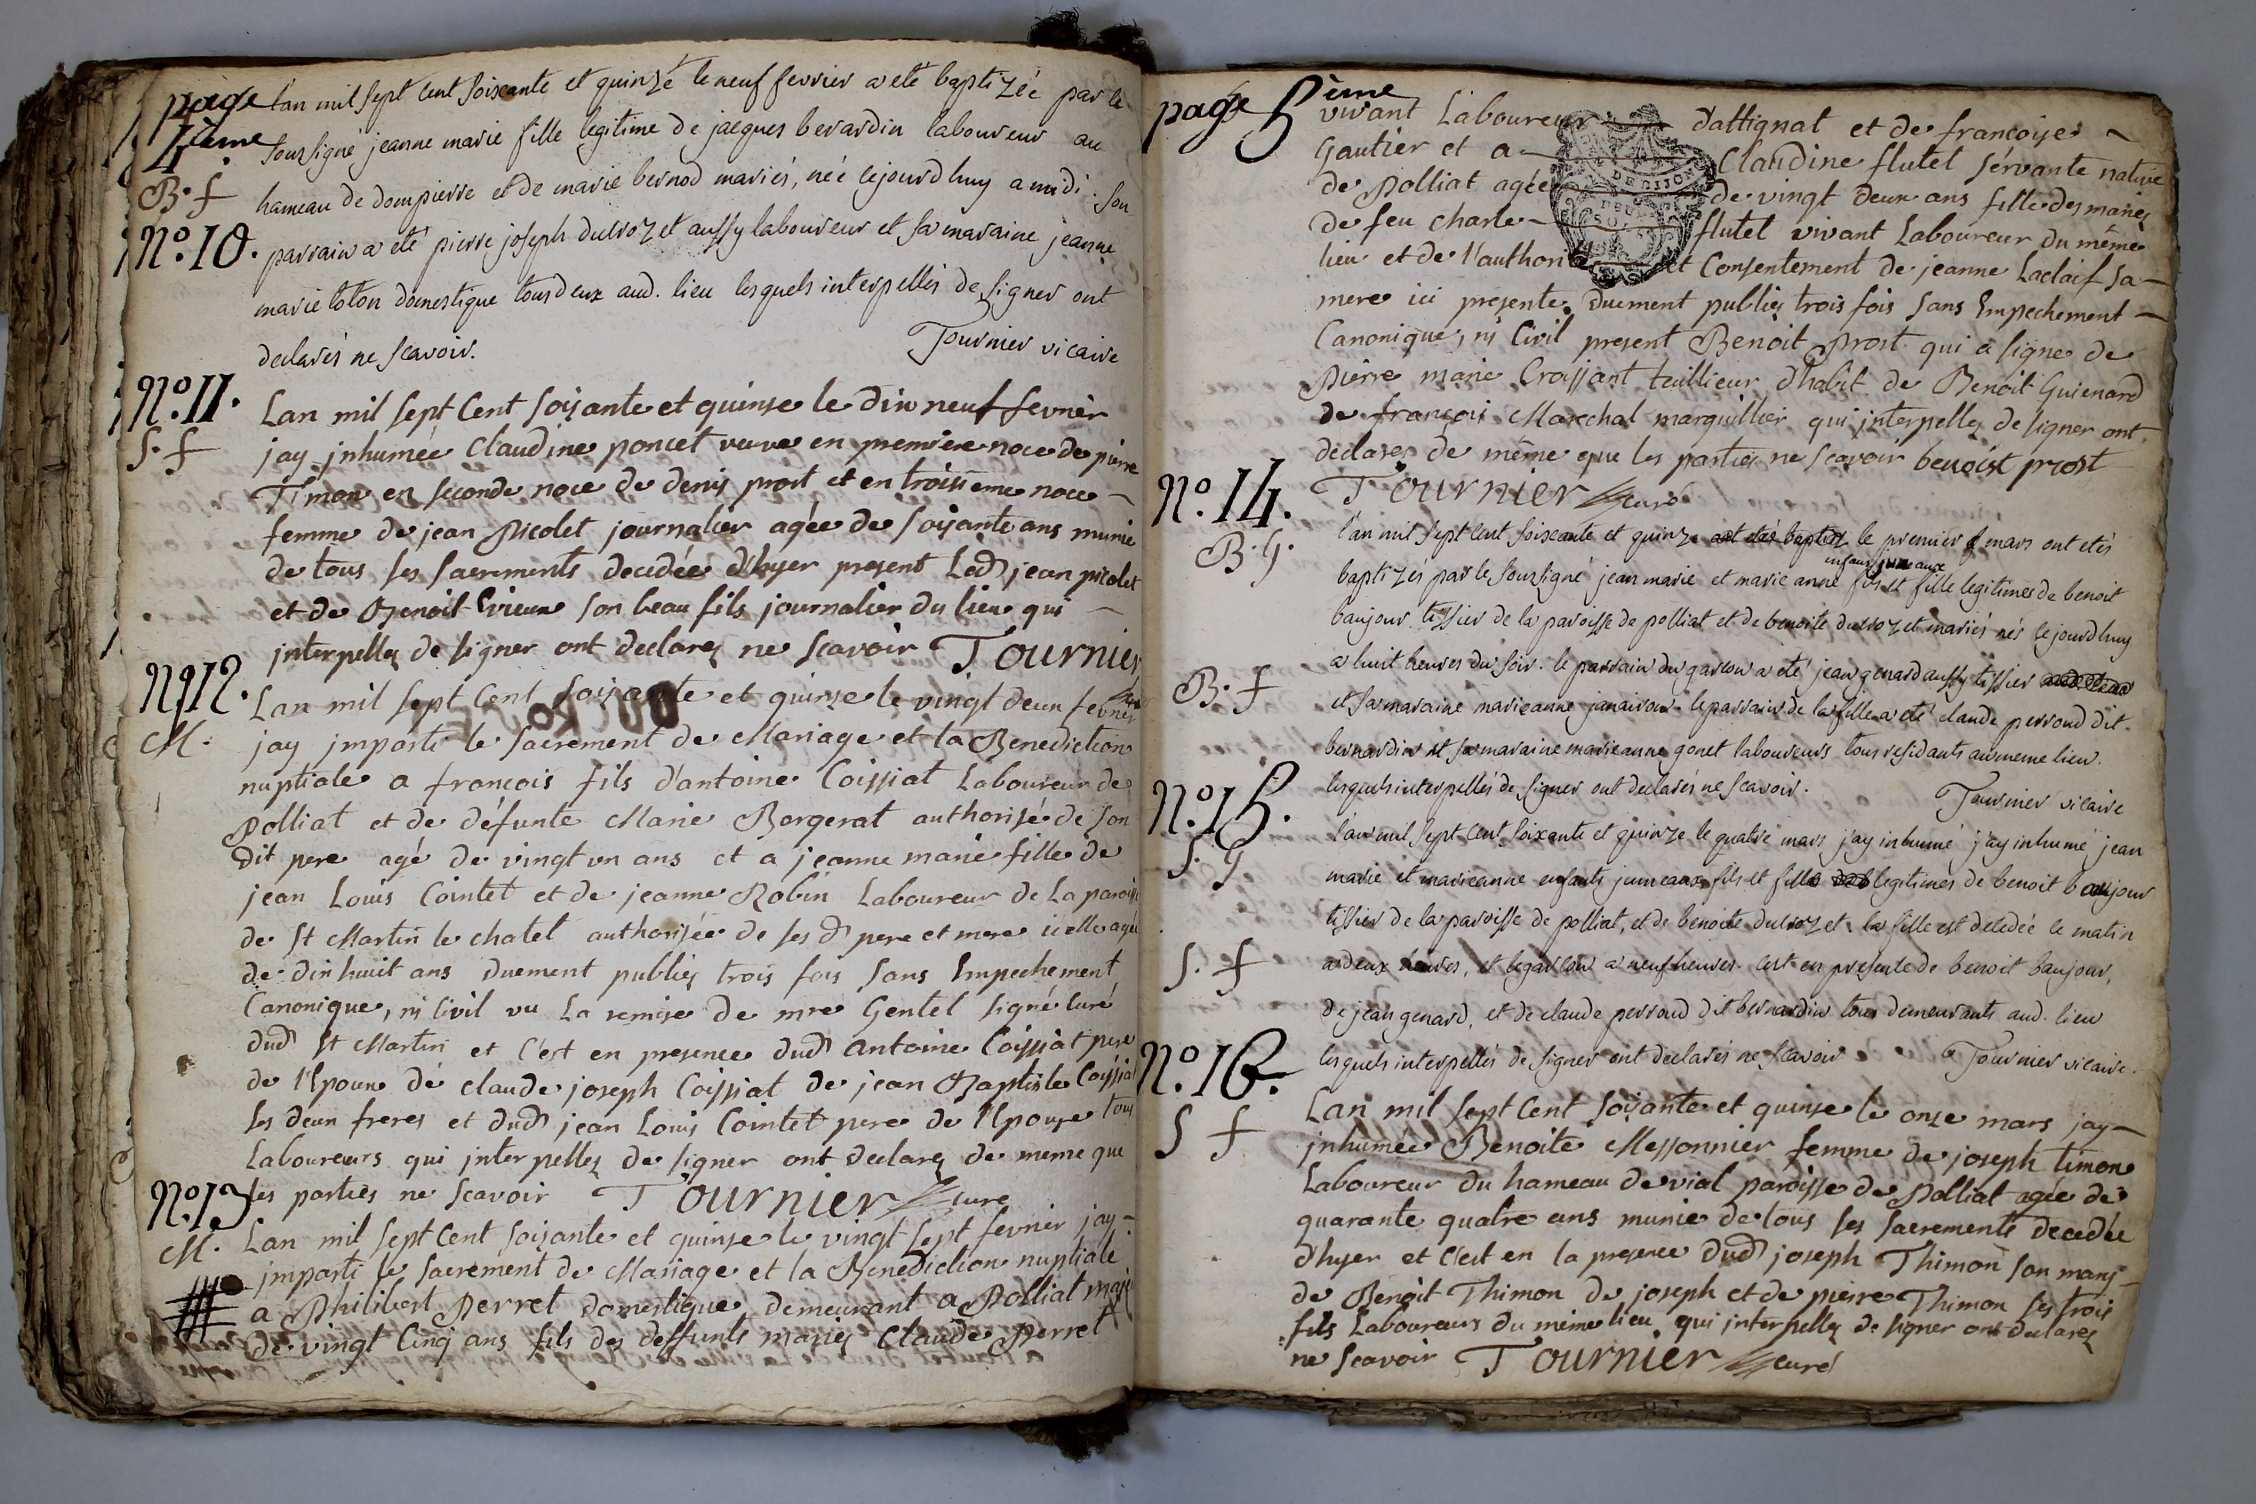 page
4ème
B. f
N.o 10.
l'an mil sept cent soixante et quinze le neuf fevrier a eté baptizée par le
soussigné jeanne marie fille legitime de jacques berardin laboureur au
hameau de dompierre et de marie bernod mariés, née cejourd'huy a midi. son
parrain a eté pierre joseph duwozet aussy laboureur et sa maraine jeanne
marie toton domestique tous deux aud. lieu lesquels interpellés de signer ont
declarés ne scavoir. Tournier vicaire
N.o 11.
S. f
Lan mil sept Cent soixante et quinse le dix neuf fevrier
jay jnhumée Claudine poncet veuve en première noce de pierre
Timon en seconde noce de denis prost et en troisieme noce
femme de jean Picolet journalier agée de soixante ans munie
de tous ses sacrements decedée d'hyer present Led jean picolet
et de Benoit Vieux son beau fils journalier du lieu qui
jnterpellez de signer ont declarez ne scavoir Tournier
N.o 12.
M.
Lan mil sept Cent soixante et quinse le vingt deux fevrier
jay jmparti le sacrement de Mariage et la Benediction
nuptiale a francois fils d'antoine Coissiat Laboureur de
Polliat et de défunte Marie Borgerat authorisé de son
dit pere agé de vingt un ans et a jeanne marie fille de
jean Louis Cointet et de jeanne Robin Laboureur de La paroisse
de St Martin le chatel authorisée de ses d pere et mere icelle agée
de dix huit ans duement publiez trois fois sans Empechement
Canonique, ni Civil vu La remise de mre Gentel signé curé
dud St Martin et C'est en presence dud Antoine Coissiat pere
de l'Epoux de claude joseph Coissiat de jean Baptiste Coissiat
ses deux freres et dud jean Louis Cointet pere de l'Epouse tous
Laboureurs qui jnterpellez de signer ont declarez de meme que
les parties ne scavoir Tournier curé
N.o 13
M.
Lan mil sept Cent soixante et quinse le vingt sept fevrier jay
jmparti le sacrement de Mariage et la Benediction nuptiale
a Philibert Perret domestique demeurant a Polliat maje
de vingt Cinq ans fils des deffunts mariez Claude Perret
page 5ème
vivant Laboureur d'attignat et de françoise
Gautier et a Claudine flutet servante native
de Polliat agée de vingt deux ans fille des mariez
de feu charle flutet vivant Laboureur du même
lieu et de l'authorité et Consentement de jeanne Laclaif sa
mere ici presente, duement publiez trois fois sans Empechement
Canonique, ni Civil present Benoit Prost qui a signe de
Pierre marie Croissant taillieur d'habit de Benoit Guienard
de françois Marechal marguillier qui jnterpellez de signer ont
declarez de même que les parties ne scavoir benoist prost
Tournier curé
N.o 14.
B. G.
l'an mil sept cent soixante et quinze ont etés baptizés le premier mars ont etés
baptizés par le soussigné jean marie et marie anne enfans jumeaux fils et fille legitimes de benoit
baujour tissier de la paroisse de polliat et de benoite duwozet mariés nés cejourd'huy
a huit heures du soir. le parrain du garcon a eté jean genard aussy tissier
B. f
et sa maraine marieanne janairon. le parrain de la fille a eté claude perroud dit
bernardin et sa maraine marieanne gonet laboureurs tous residants au meme lieu.
lesquels interpellés de signer ont declarés ne scavoir. Tournier vicaire
N.o 15.
S. G
l'an mil sept cent soixante et quinze le quatre mars j'ay inhumé j'ay inhumé jean
marie et marieanne enfants jumeaux fils et fille legitimes de benoit baujour
tissier de la paroisse de polliat, et de benoite duwozet. la fille est decedée le matin
S. f
a deux heures, et le garcon a neuf heures. c'est en presente de benoit baujour,
de jean genard, et de claude perroud dit bernardin tous demeurants aud. lieu
lesquels interpellés de signer ont declarés ne scavoir Tournier vicaire.
N.o 16.
S f
Lan mil sept Cent soixante et quinse le onze mars jay
jnhumée Benoite Messonnier femme de joseph timon
Laboureur du hameau de vial paroisse de Polliat agée de
quarante quatre ans munie de tous ses sacrements decedée
d'hyer et C'est en la presence dud joseph Thimon son mary
de Benoit Thimon de joseph et de pierre Thimon ses trois
fils Laboureurs du même lieu qui jnterpellez de signer ont declarez
ne scavoir Tournier curé